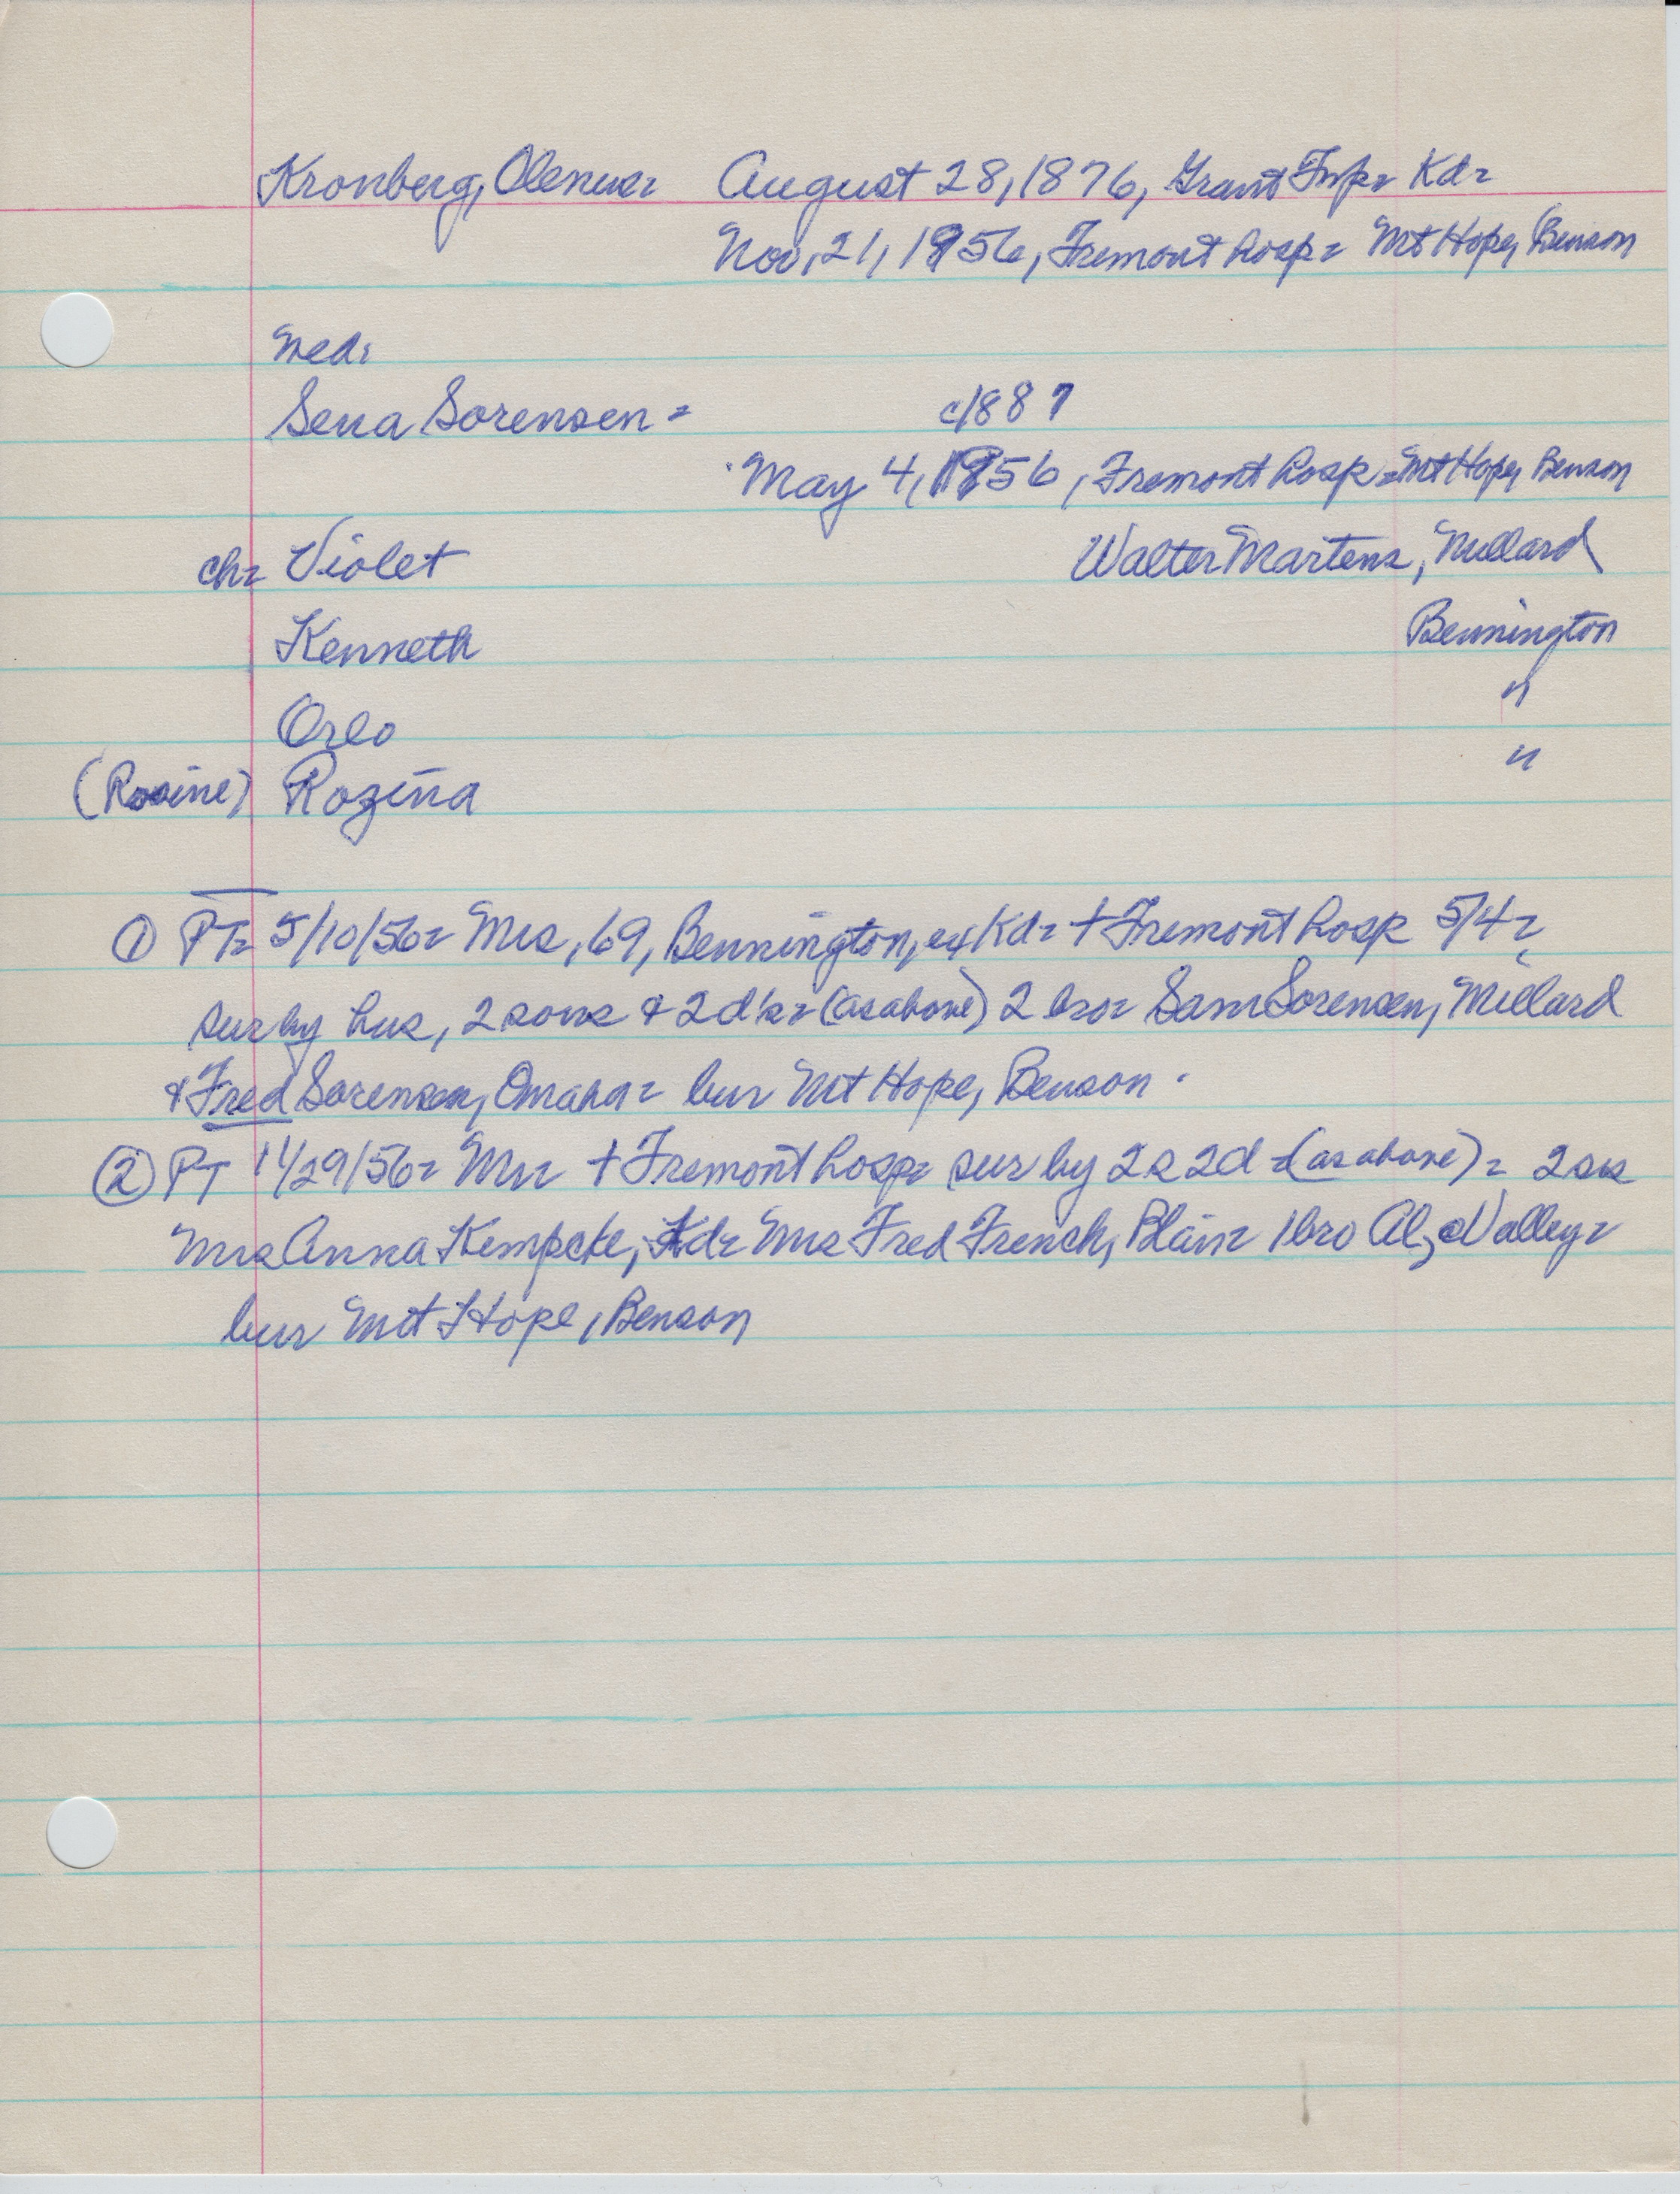 Kronberg, Olenus= August 28, 1876, Grant Twp= Kd=
Nov, 21, 1956, Fremont hosp= Mt Hope, Benson
wed:
Sena Sorensen= c1887
May 4, 1956, Fremont hosp= Mt Hope, Benson
ch= Violet Walter Martens, Millard
Kenneth Bennington
Orlo "
(Rosine) Rozina "
① PT= 5/10/56= Mrs, 69, Bennington, ex Kd= + Fremont hosp 5/4=,
sur by hus, 2 sons & 2 d's= (as above) 2 bro= Sam Sorensen, Millard
& Fred Sorensen, Omaha= bur Mt Hope, Benson.
② PT 11/29/56= Mr= + Fremont hosp= sur by 2s 2d = (as above)= 2 sis
Mrs Anna Kempcke, Kd= Mrs Fred French, Blair= 1 bro Al, Valley=
bur Mt Hope, Benson